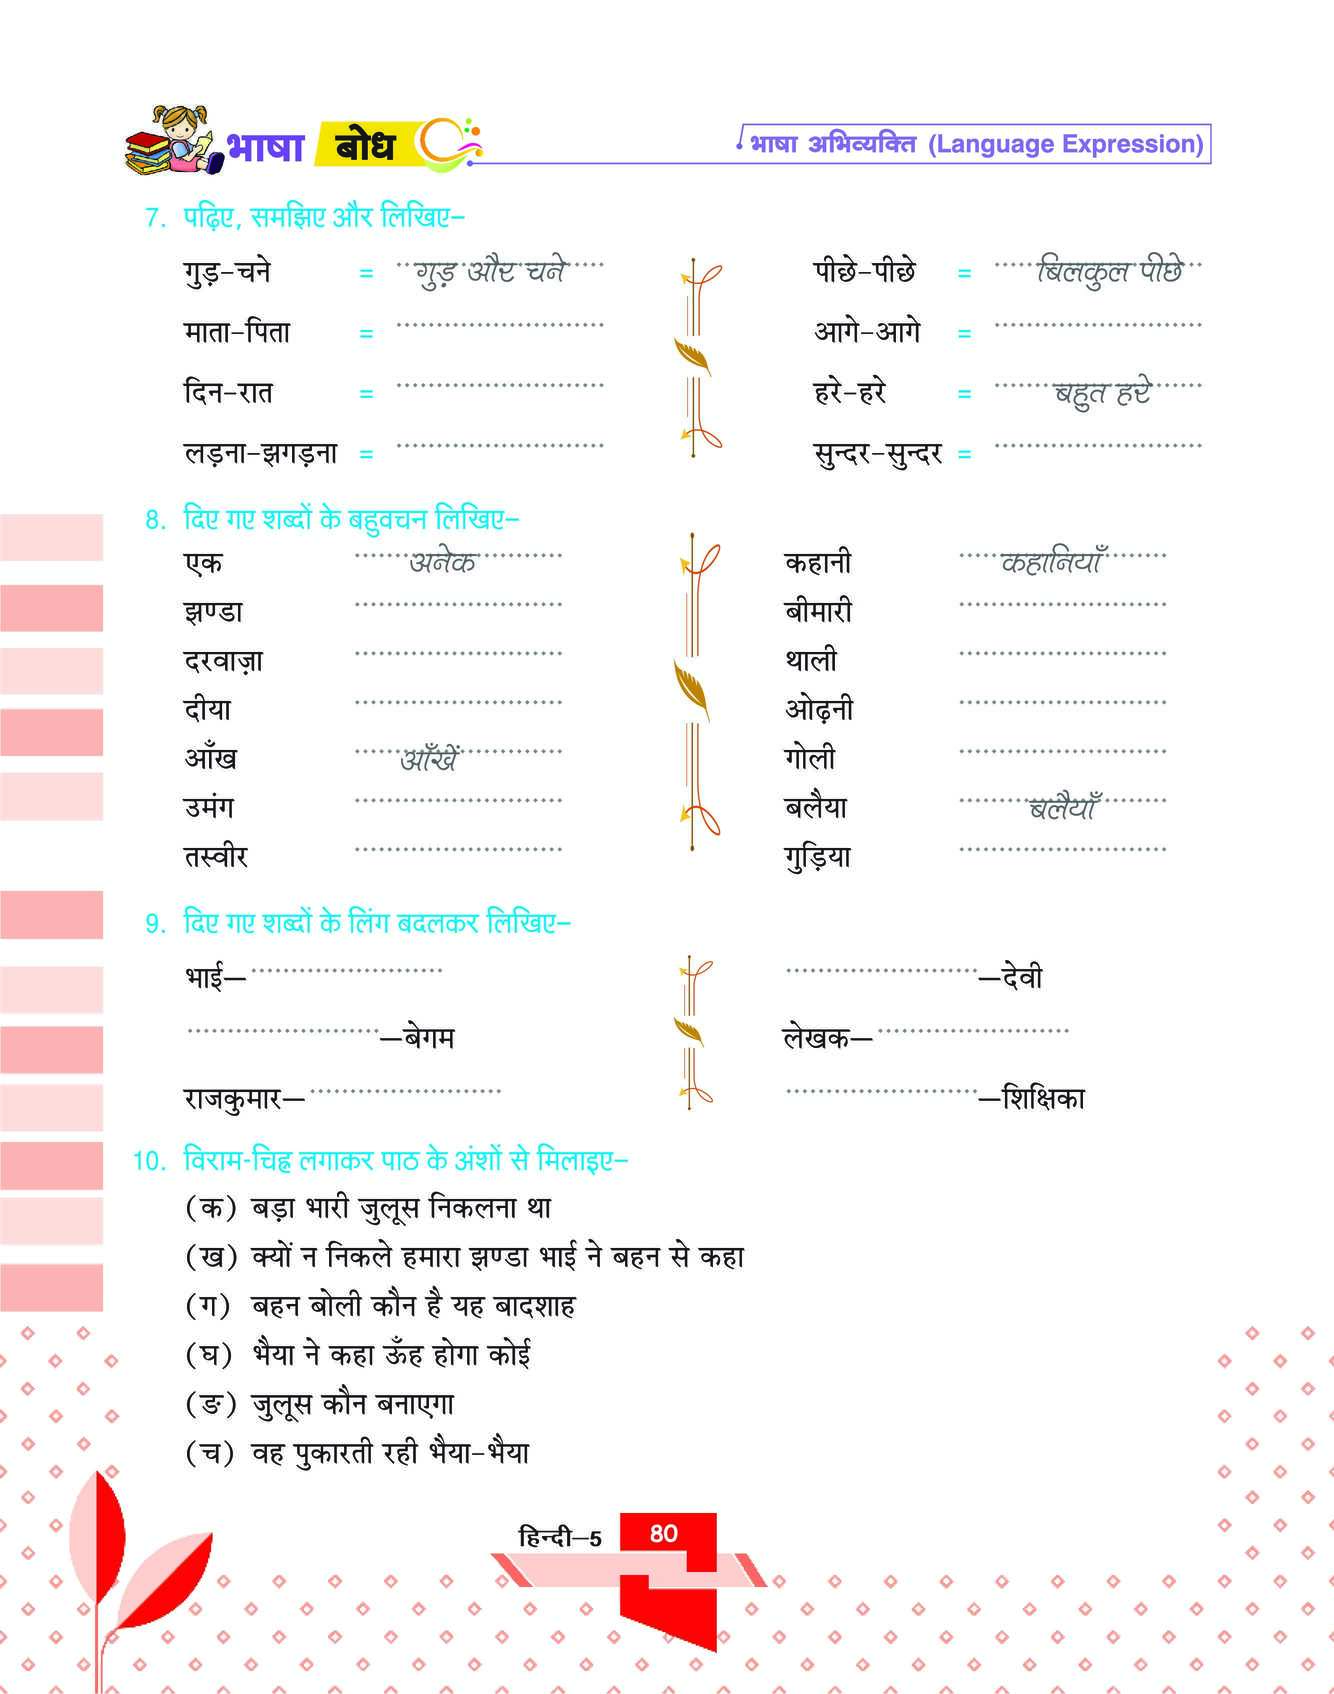 भाषा बोध
भाषा अभिव्यक्ति (Language Expression)
7. पढ़िए, समझिए और लिखिए–
गुड़-चने = गुड़ और चने
पीछे-पीछे = बिलकुल पीछे
माता-पिता =
आगे-आगे =
दिन-रात =
हरे-हरे = बहुत हरे
लड़ना-झगड़ना =
सुन्दर-सुन्दर =
8. दिए गए शब्दों के बहुवचन लिखिए–
एक अनेक
कहानी कहानियाँ
झण्डा
बीमारी
दरवाज़ा
थाली
दीया
ओढ़नी
आँख आँखें
गोली
उमंग
बलैया बलैयाँ
तस्वीर
गुड़िया
9. दिए गए शब्दों के लिंग बदलकर लिखिए–
भाई—
—देवी
—बेगम
लेखक—
राजकुमार—
—शिक्षिका
10. विराम-चिह्न लगाकर पाठ के अंशों से मिलाइए–
(क) बड़ा भारी जुलूस निकलना था
(ख) क्यों न निकले हमारा झण्डा भाई ने बहन से कहा
(ग) बहन बोली कौन है यह बादशाह
(घ) भैया ने कहा ऊँह होगा कोई
(ङ) जुलूस कौन बनाएगा
(च) वह पुकारती रही भैया-भैया
हिन्दी–5
80